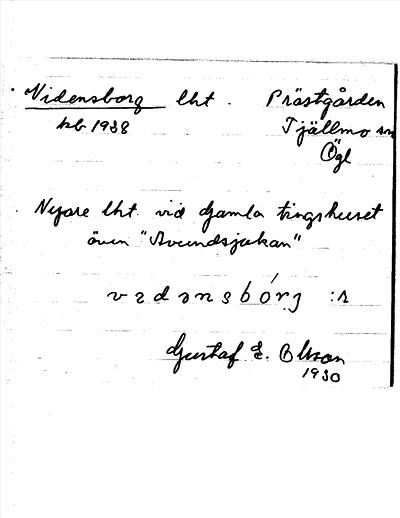 Vidensborg lht. Prästgården
kb 1938 Tjällmo sn
Ögl
Nyare lht vid gamla tingshuset
även "Avundsjukan"
vɩdənsbórj :s
Gustaf E. Olsson
1930